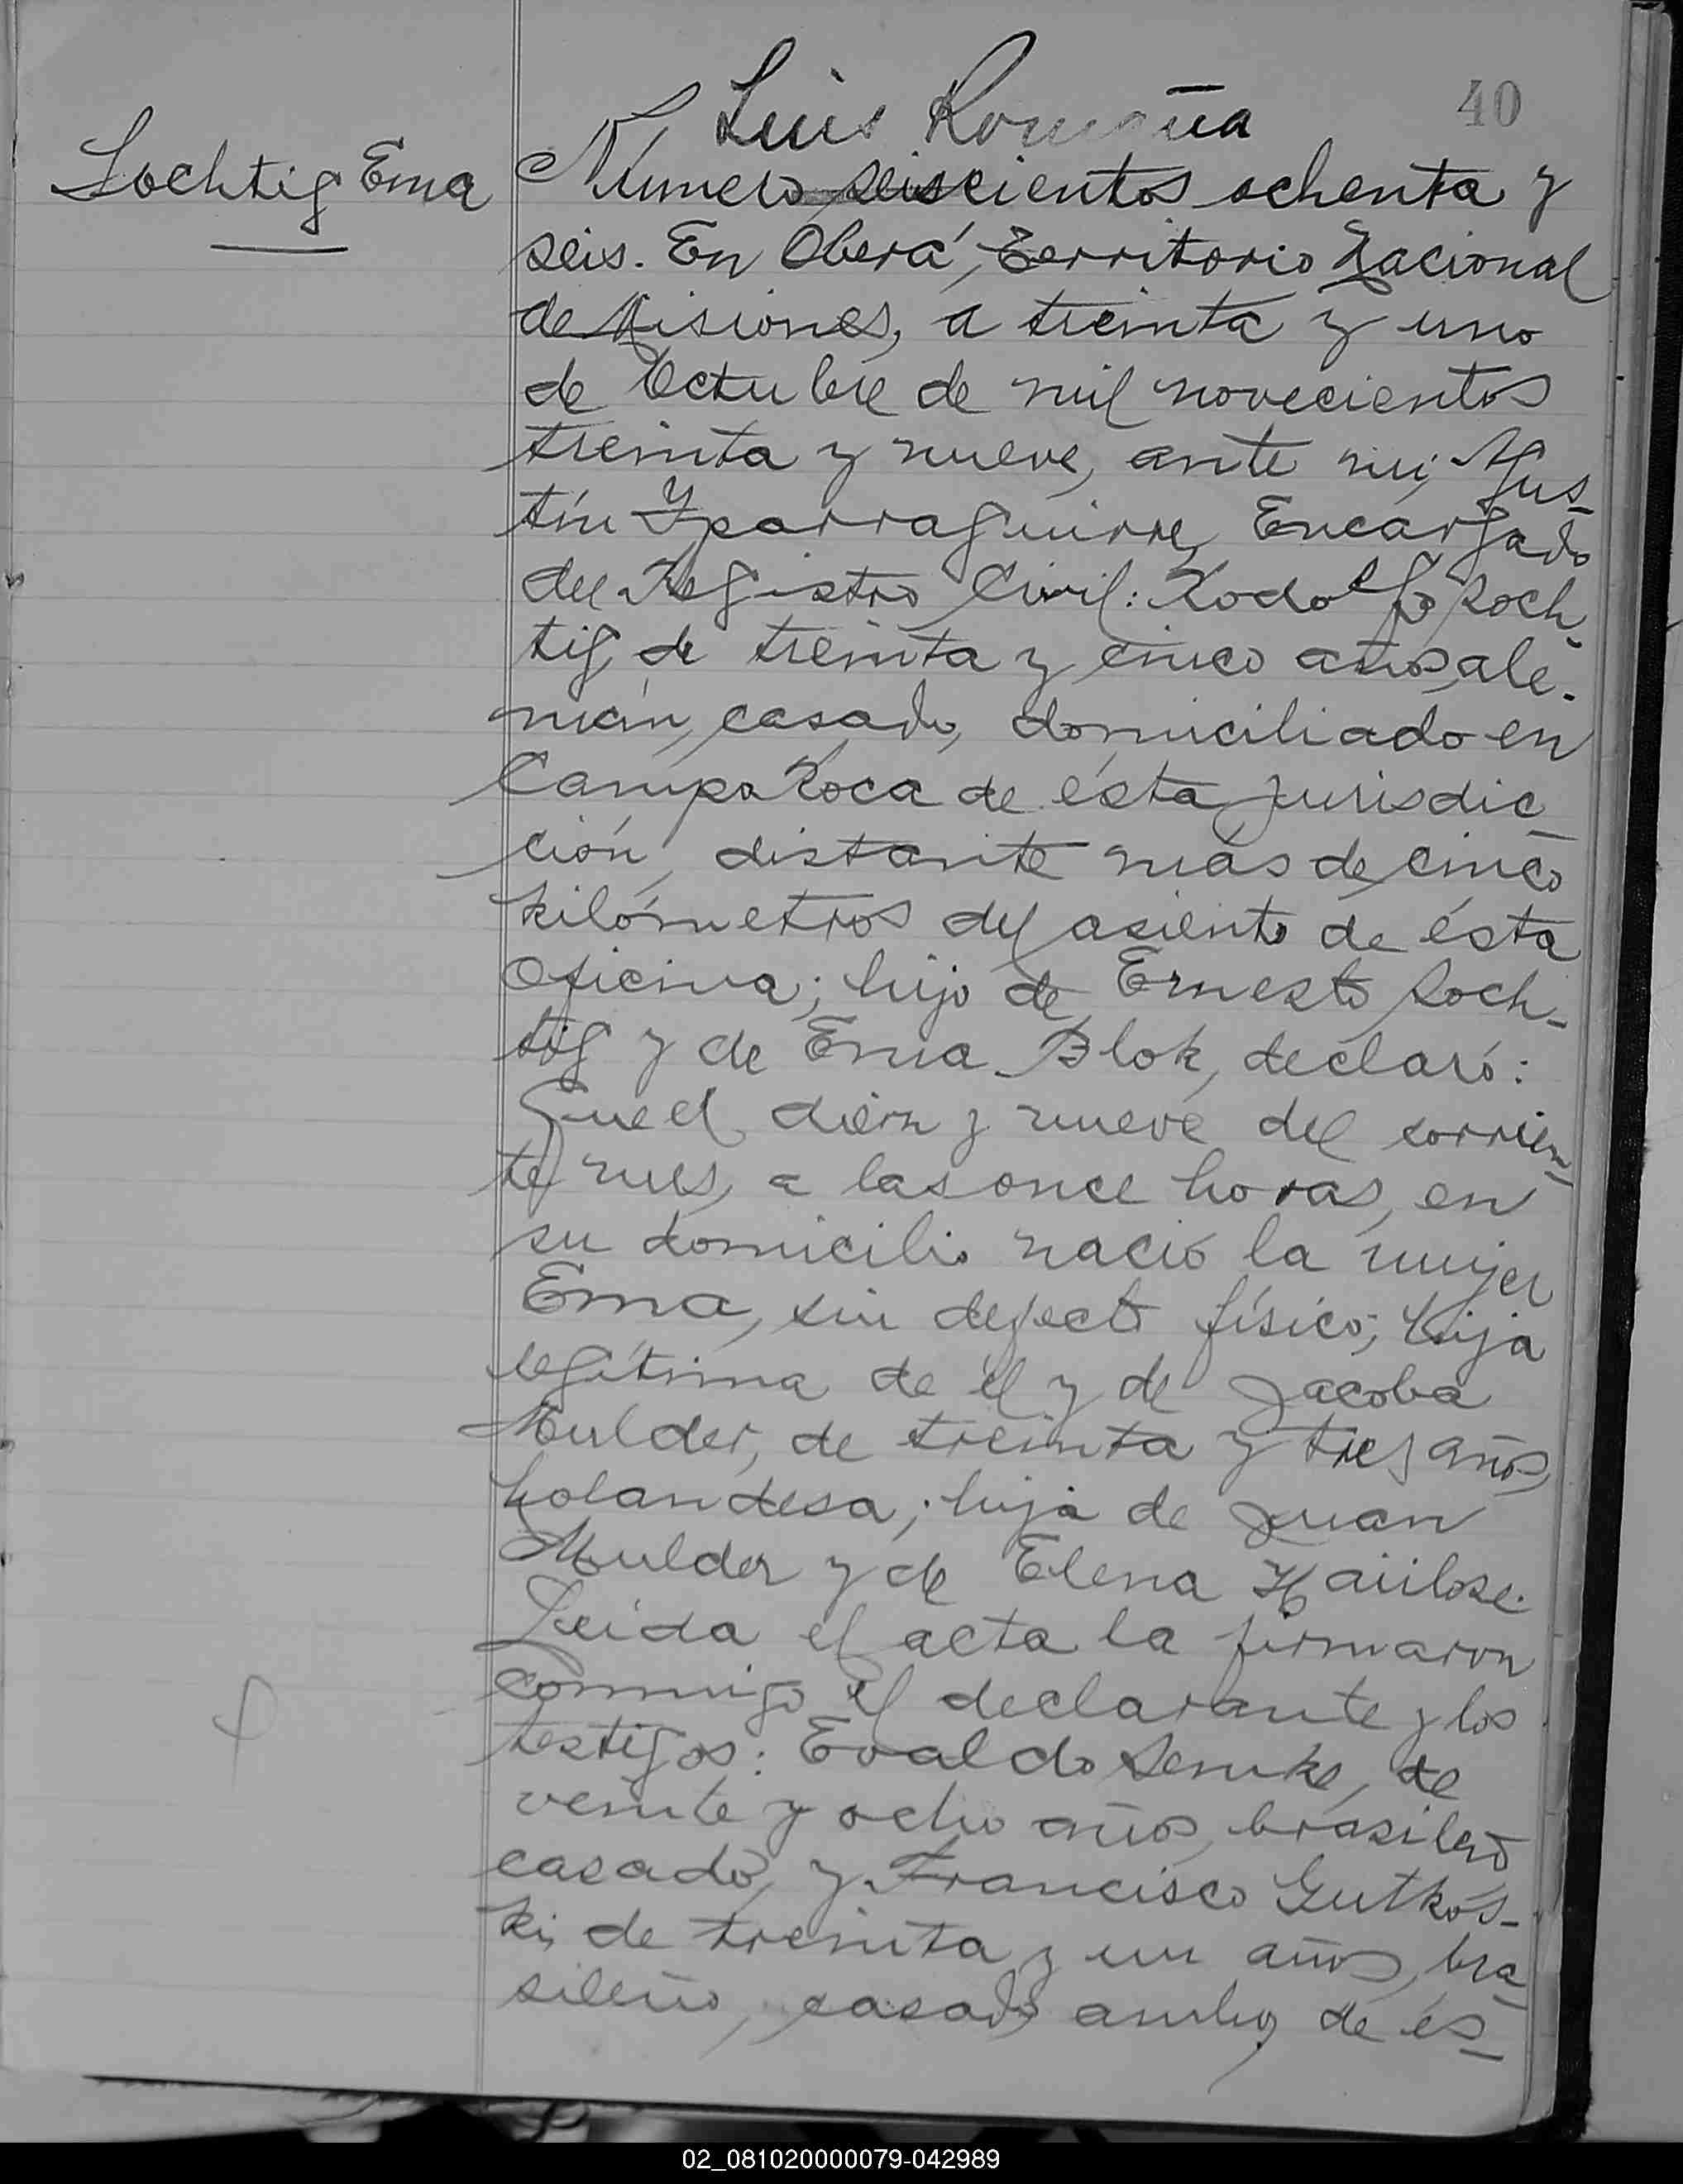 40
Luis Romaña
Lochtig Ema
Número seiscientos ochenta y
seis. En Oberá, Territorio Nacional
de Misiones, a treinta y uno
de Octubre de mil novecientos
treinta y nueve, ante mi, Agus-
tín Yparraguirre, Encargado
del Registro Civil: Rodolfo Loch-
tig, de treinta y cinco años, ale-
mán, casado, domiciliado en
Campo Roca de ésta jurisdic-
ción, distante más de cinco
kilómetros del asiento de ésta
Oficina; hijo de Ernesto Loch-
tig y de Ema Blok, declaró:
Que el diez y nueve del corrien-
te mes, a las once horas, en
su domicilio nació la mujer
Ema, sin defecto físico; hija
legítima de él y de Jacoba
Mulder, de treinta y tres años,
holandesa; hija de Juan
Mulder y de Elena
Leída el acta la firmaron
conmigo el declarante y los
testigos: Evaldo Lemke, de
veinte y ocho años, brasileño
casado, y Francisco Gutkos-
ki, de treinta y un años, bra-
sileño, casado, ambos de és-
02_081020000079-042989